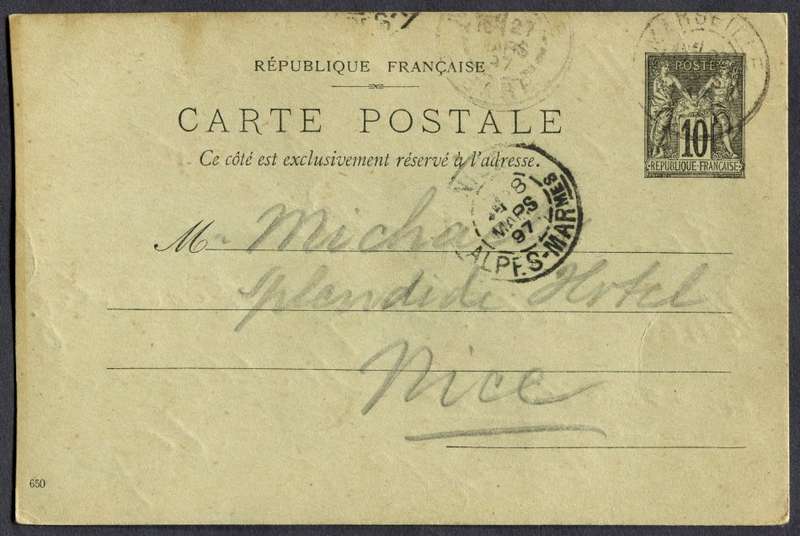 MARSEILLE
27
MARS
97
RÉPUBLIQUE FRANÇAISE
POSTE
10
RÉPUBLIQUE FRANÇAISE
CARTE POSTALE
Ce côté est exclusivement réservé à l'adresse.
8
MARS
97
ALPES-MARMES
M
Splendide Hotel
Nice
650